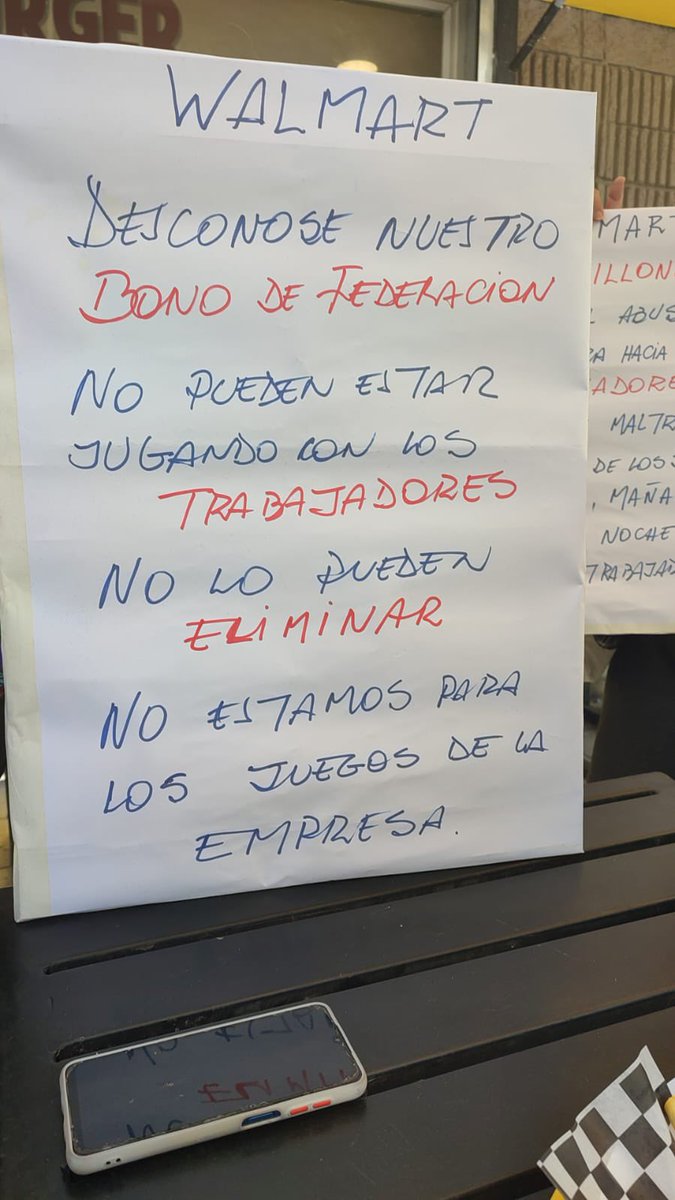 RGER
WALMART
DESCONOSE NUESTRO
BONO DE FEDERACION
NO PUEDEN ESTAR
JUGANDO CON LOS
TRABAJADORES
NO LO PUEDEN
ELIMINAR
NO ESTAMOS PARA
LOS JUEGOS DE LA
EMPRESA.
MART
ILLON
ABUS
HACIA
ADORE
MALTR
DE LOS
, MAÑA
NOCHE
TRABAJAD